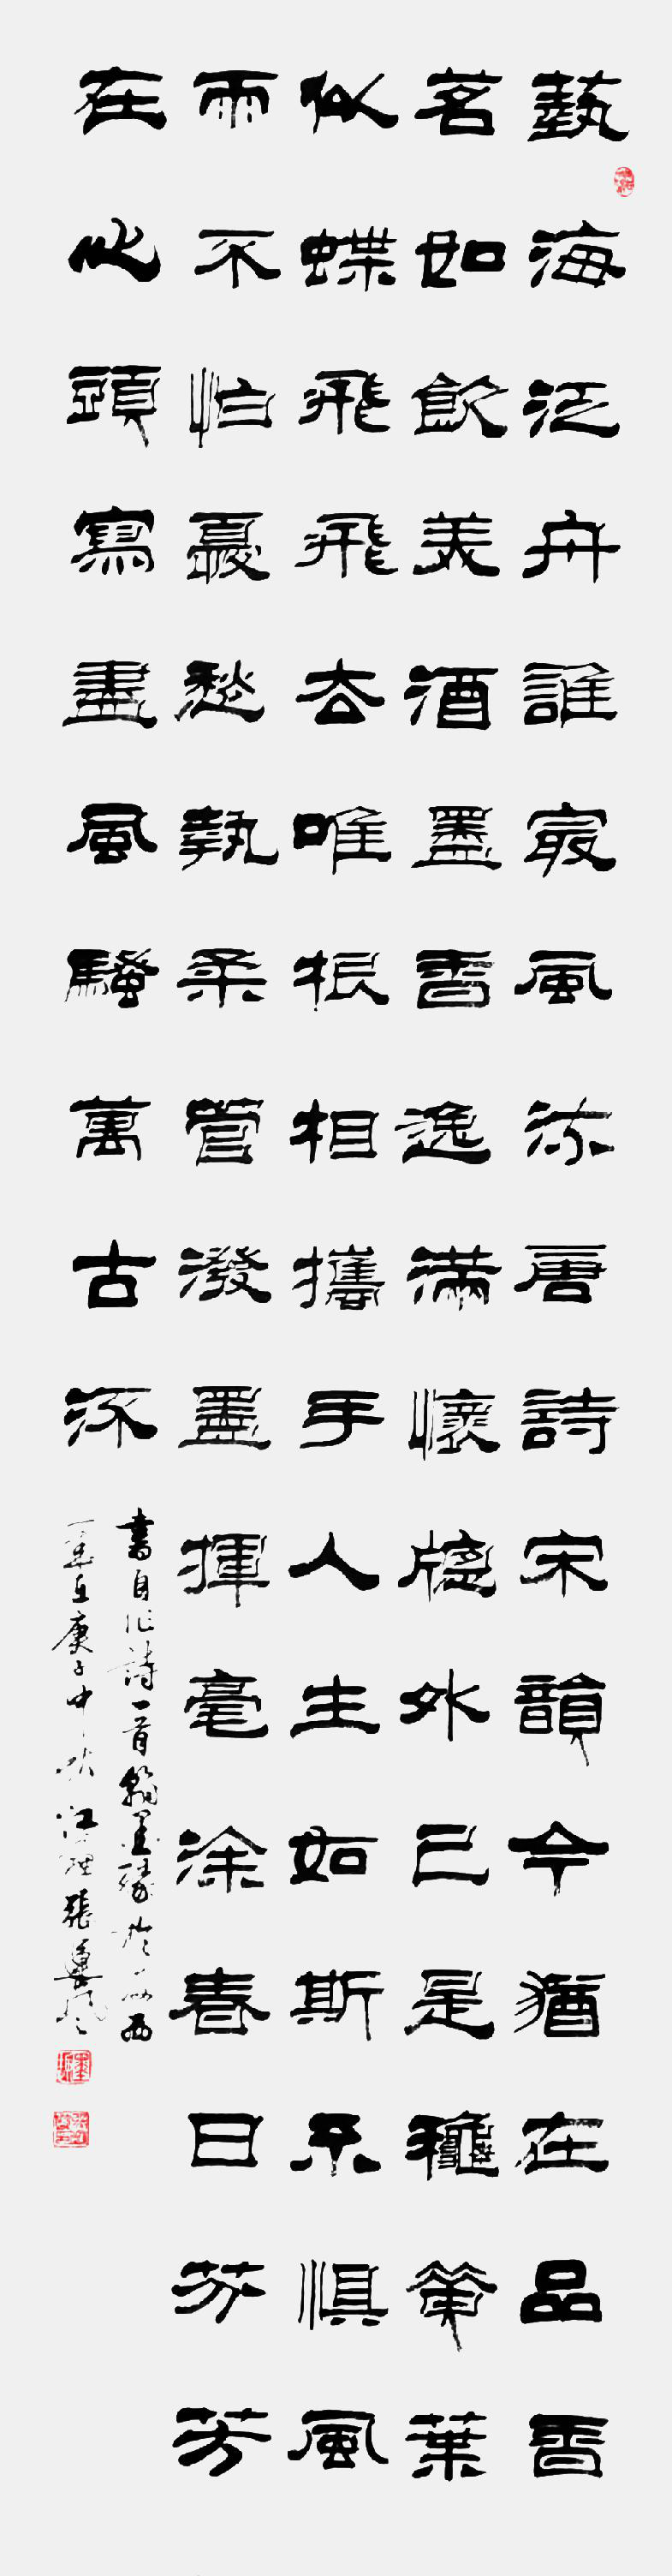 藝海泛舟誰最風流唐詩宋韻今猶在品香
茗如飲美酒墨香逸滿懷窗外已是穐第葉
似蝶飛飛去唯根相攜手人生如斯不惧風
雨不怕憂愁執柔管潑墨揮毫涂春日芬芳
在心頭寫盡風騷萬古流
書自作詩一首翰墨緣於
庚子中秋張